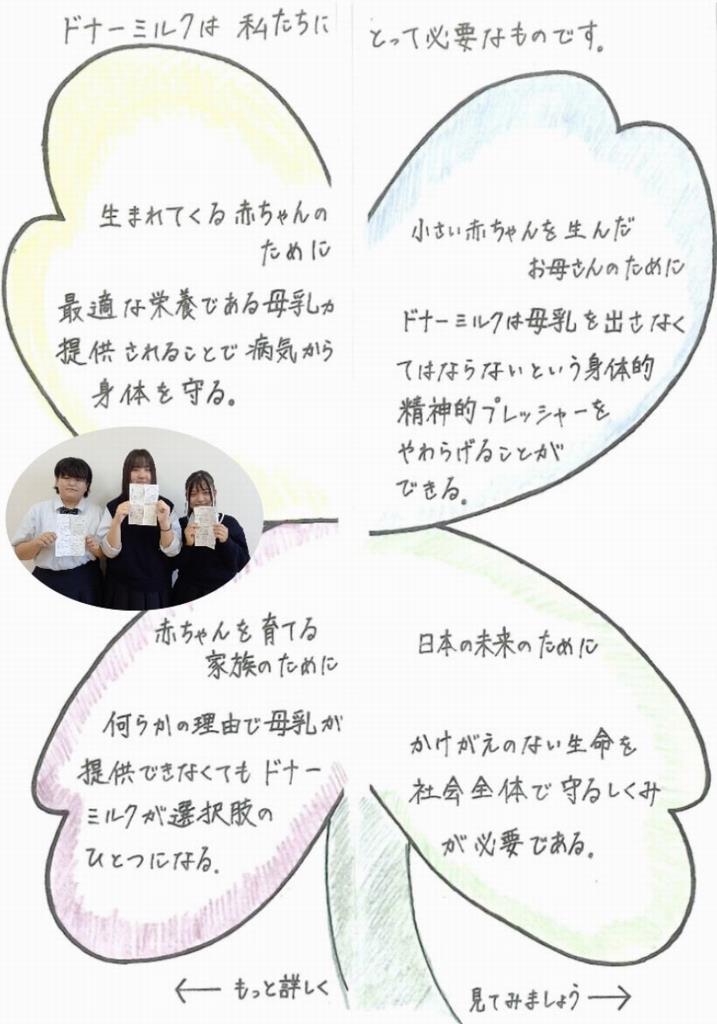 ドナーミルクは 私たちに とって必要なものです。
生まれてくる赤ちゃんの
ために
最適な栄養である母乳が
提供されることで病気から
身体を守る。
小さい赤ちゃんを生んだ
お母さんのために
ドナーミルクは母乳を出さなく
てはならないという身体的
精神的プレッシャーを
やわらげることが
できる。
赤ちゃんを育てる
家族のために
何らかの理由で母乳が
提供できなくてもドナー
ミルクが選択肢の
ひとつになる。
日本の未来のために
かけがえのない生命を
社会全体で守るしくみ
が必要である。
← もっと詳しく 見てみましょう →